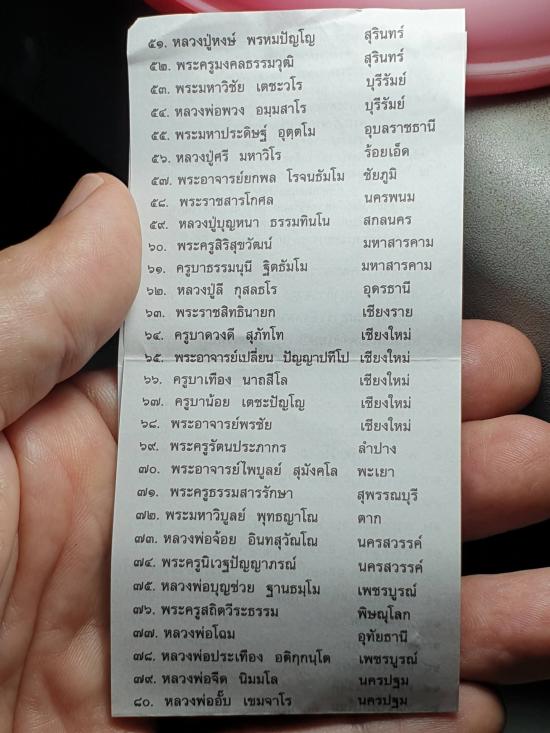 ๕๑. หลวงปู่หงษ์ พรหมปัญโญ สุรินทร์
๕๒. พระครูมงคลธรรมวุฒิ สุรินทร์
๕๓. พระมหาวิชัย เตชะวโร บุรีรัมย์
๕๔. หลวงพ่อพวง อมฺมสาโร บุรีรัมย์
๕๕. พระมหาประดิษฐ์ อุตฺตโม อุบลราชธานี
๕๖. หลวงปู่ศรี มหาวิโร ร้อยเอ็ด
๕๗. พระอาจารย์ยกพล โรจนธัมโม ชัยภูมิ
๕๘. พระราชสารโกศล นครพนม
๕๙. หลวงปู่บุญหนา ธรรมทินโน สกลนคร
๖๐. พระครูสิริสุขวัฒน์ มหาสารคาม
๖๑. ครูบาธรรมนุนี ฐิตธัมโม มหาสารคาม
๖๒. หลวงปู่ลี กุสลธโร อุดรธานี
๖๓. พระราชสิทธินายก เชียงราย
๖๔. ครูบาดวงดี สุภัทโท เชียงใหม่
๖๕. พระอาจารย์เปลี่ยน ปัญญาปทีโป เชียงใหม่
๖๖. ครูบาเทือง นาถสีโล เชียงใหม่
๖๗. ครูบาน้อย เตชะปัญโญ เชียงใหม่
๖๘. พระอาจารย์พรชัย เชียงใหม่
๖๙. พระครูรัตนประภากร ลำปาง
๗๐. พระอาจารย์ไพบูลย์ สุมังคโล พะเยา
๗๑. พระครูธรรมสารรักษา สุพรรณบุรี
๗๒. พระมหาวิบูลย์ พุทธญาโณ ตาก
๗๓. หลวงพ่อจ้อย อินทสุวัณโณ นครสวรรค์
๗๔. พระครูนิเวฐปัญญาภรณ์ นครสวรรค์
๗๕. หลวงพ่อบุญช่วย ฐานธมฺโม เพชรบูรณ์
๗๖. พระครูสถิตวีระธรรม พิษณุโลก
๗๗. หลวงพ่อโฉม อุทัยธานี
๗๘. หลวงพ่อประเทือง อติกฺกนฺโต เพชรบูรณ์
๗๙. หลวงพ่อจืด นิมมโล นครปฐม
๘๐. หลวงพ่ออั๊บ เขมจาโร นครปฐม